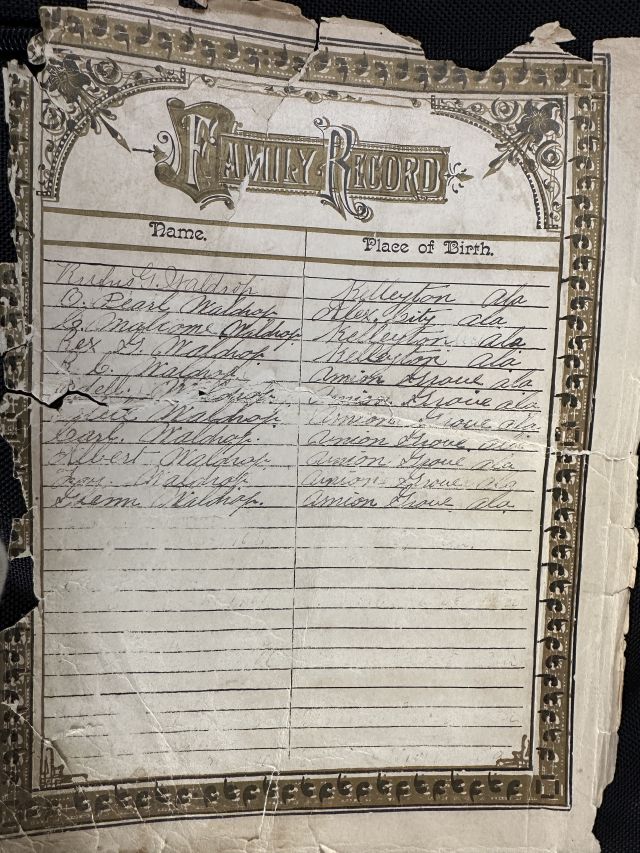 FAMILY RECORD
Name. Place of Birth.
Rufus G. Waldrop Kelleyton ala
O. Pearl Waldrop Alex City ala.
Waldrop Kelleyton ala
Rex G. Waldrop Kelleyton ala
C. Waldrop Union Grove ala
Waldrop Union Grove ala
Waldrop. Union Grove ala
Earl. Waldrop. Union Grove ala
Albert Waldrop. Union Grove ala
Waldrop. Union Grove ala
Glenn Waldrop. Union Grove ala.